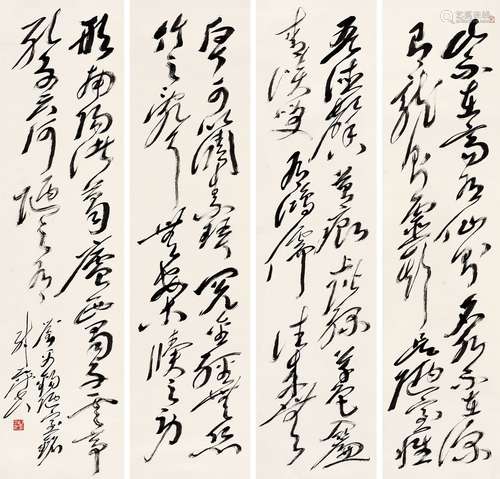 山不在高有仙則名水不在深
有龍則靈斯是陋室惟
吾德馨苔痕上階綠草色入簾
青談笑有鴻儒往來無
白丁可以調素琴閱金經無絲
竹之亂耳無案牘之勞
形南陽諸葛廬西蜀子雲亭
孔子云何陋之有
劉禹錫陋室銘